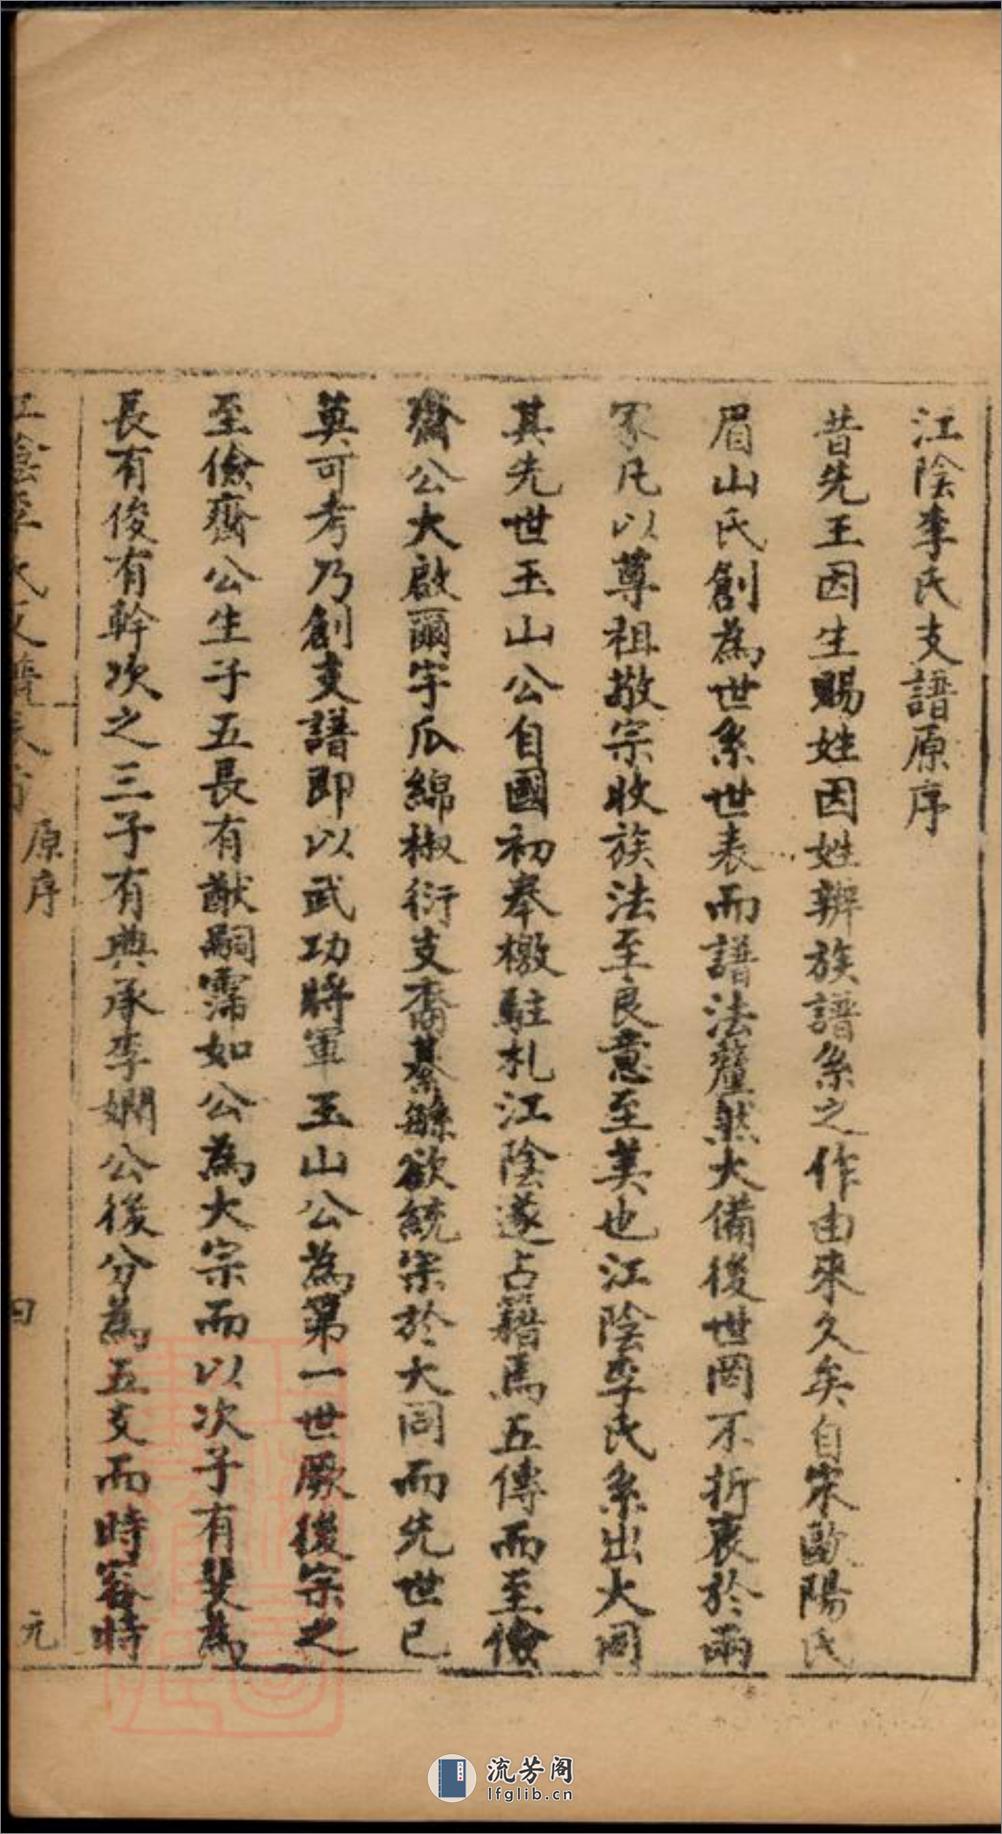 江陰李氏支譜原序
昔先王因生賜姓因姓辨族譜系之作由來久矣自宋歐陽氏
眉山氏創為世系世表而譜法釐然大備後世罔不折衷於兩
家凡以尊祖敬宗收族法至良意至美也江陰李氏系出大同
其先世玉山公自國初奉檄駐札江陰遂占籍焉五傳而至儉
齋公大啟爾宇瓜綿椒衍支裔綦繇欲統宗於大同而先世已
莫可考乃創支譜即以武功將軍玉山公為第一世厥後宗之
至儉齋公生子五長有猷嗣霈如公為大宗而以次子有斐為
長有俊有幹次之三子有典承李嫻公後分為五支而時容時
江陰李氏支譜卷首
原序
四
元
流芳阁
lfglib.cn